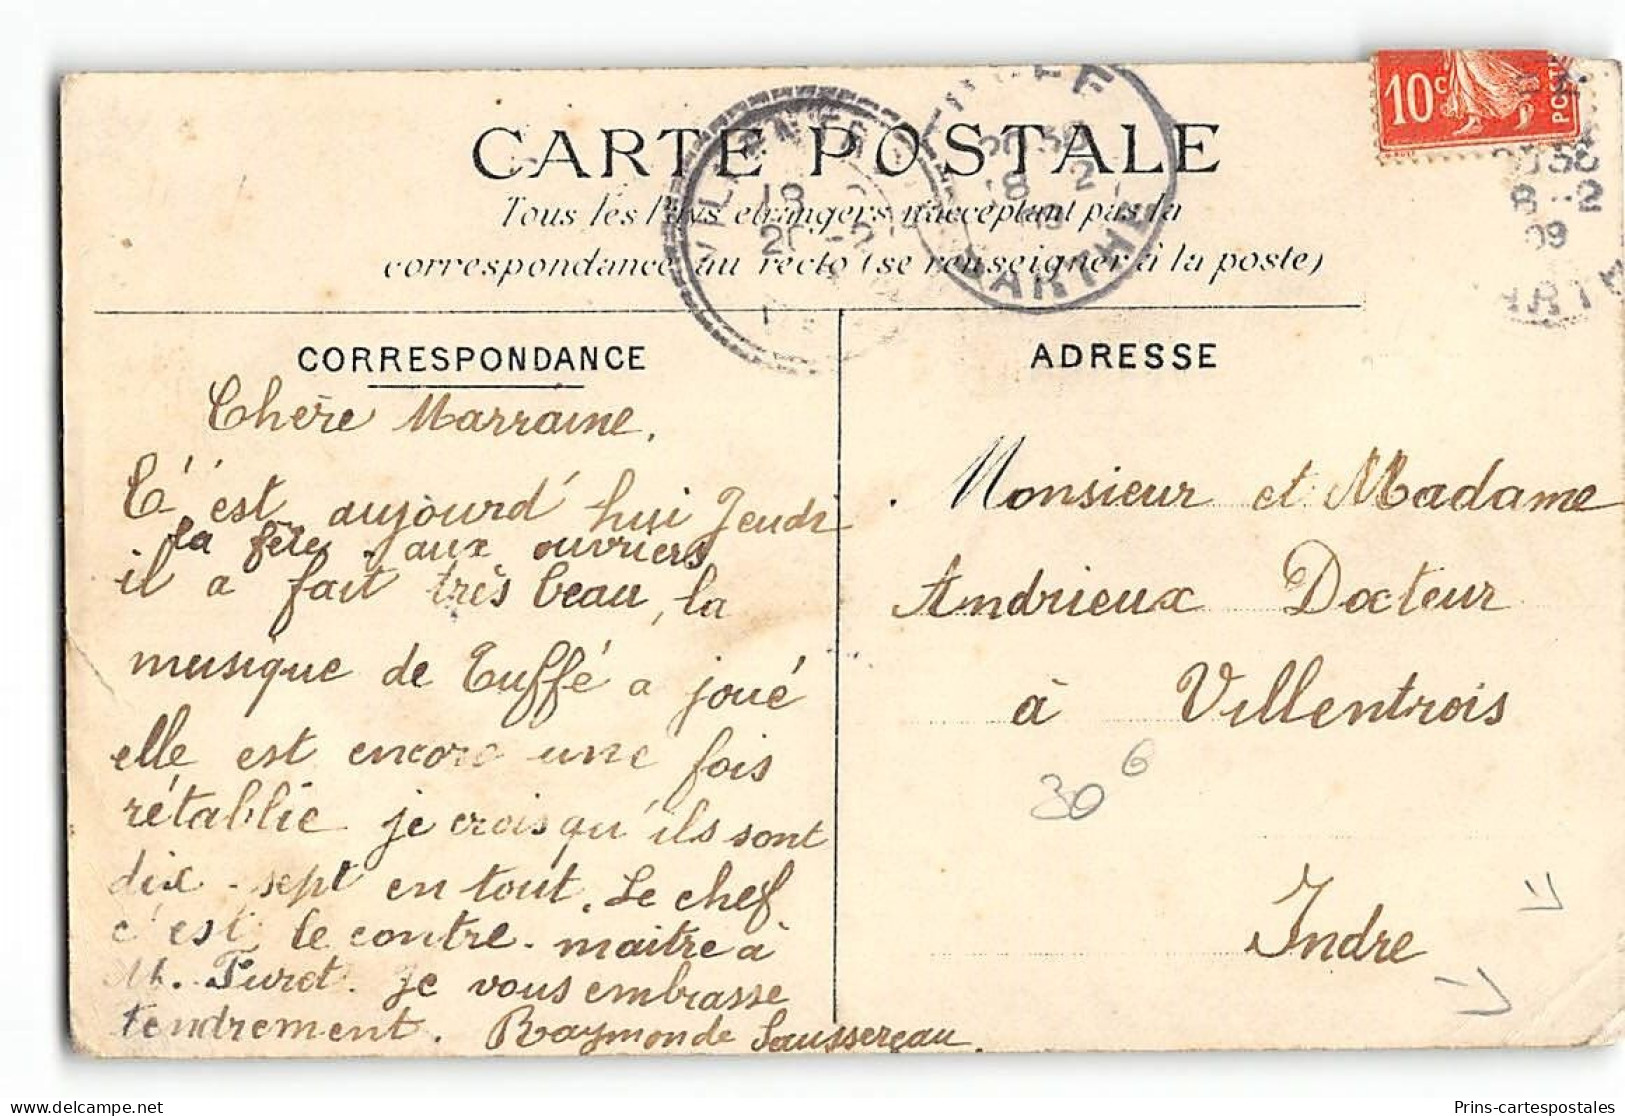 CARTE POSTALE
Tous les Pays etrangers n'acceptant pas la
correspondance au recto (se renseigner à la poste)
CORRESPONDANCE
Chère Marraine.
C'est aujourd'hui Jeudi
la fête aux ouvriers
il a fait très beau, la
musique de Tuffé a joué
elle est encore une fois
rétablie je crois qu'ils sont
dix-sept en tout. Le chef
c'est le contre-maitre à
M. Turet. Je vous embrasse
tendrement. Raymonde Saussereau.
ADRESSE
Monsieur et Madame
Andrieux Docteur
à Villentrois
Indre
30 6
10c
POSTE
SARTHE
18 2
09
Prins-cartespostales